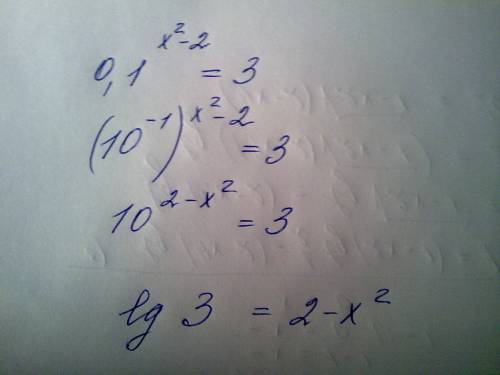 0,1^(x²-2) = 3
(10⁻¹)^(x²-2) = 3
10^(2-x²) = 3
lg 3 = 2-x²